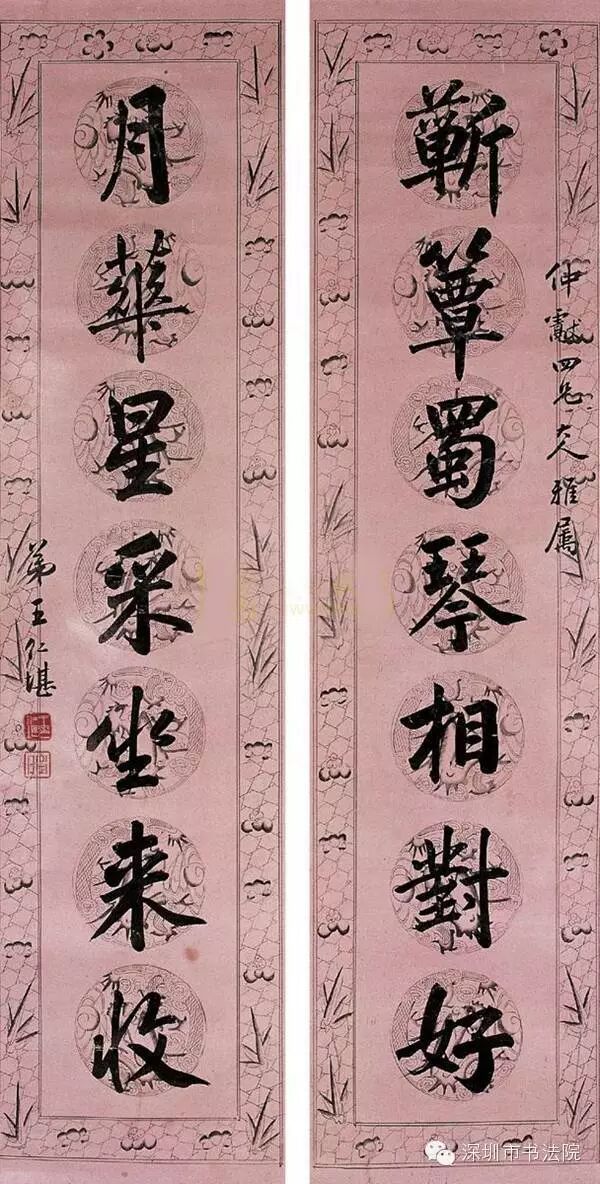 仲憲四兄大人雅属
蘄簟蜀琴相對好
月華星采坐来收
弟王仁堪
深圳市书法院